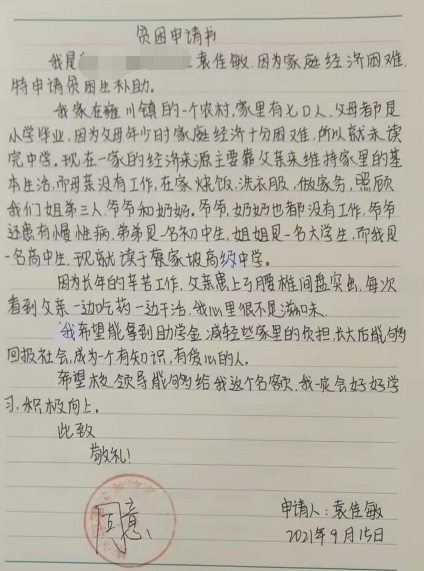 贫困申请书
我是 袁佳敏,因为家庭经济困难,
特申请贫困生补助。
我家在雍川镇的一个农村,家里有七口人,父母都是
小学毕业,因为父母年少时家庭经济十分困难,所以就未读
完中学。现在一家的经济来源主要靠父亲来维持家里的基
本生活,而母亲没有工作,在家烧饭、洗衣服、做家务、照顾
我们姐弟三人,爷爷和奶奶。爷爷、奶奶也都没有工作,爷爷
还患有慢性病,弟弟是一名初中生,姐姐是一名大学生,而我是
一名高中生,现就读于蔡家坡高级中学。
因为长年的辛苦工作,父亲患上了腰椎间盘突出,每次
看到父亲一边吃药一边干活,我心里很不是滋味。
我希望能拿到助学金,减轻些家里的负担,长大后能够
回报社会,成为个有知识,有爱心的人。
希望校领导能够给我这个名额,我一定会好好学
习,积极向上。
此致
敬礼!
同意、
申请人:袁佳敏
2021年9月15日